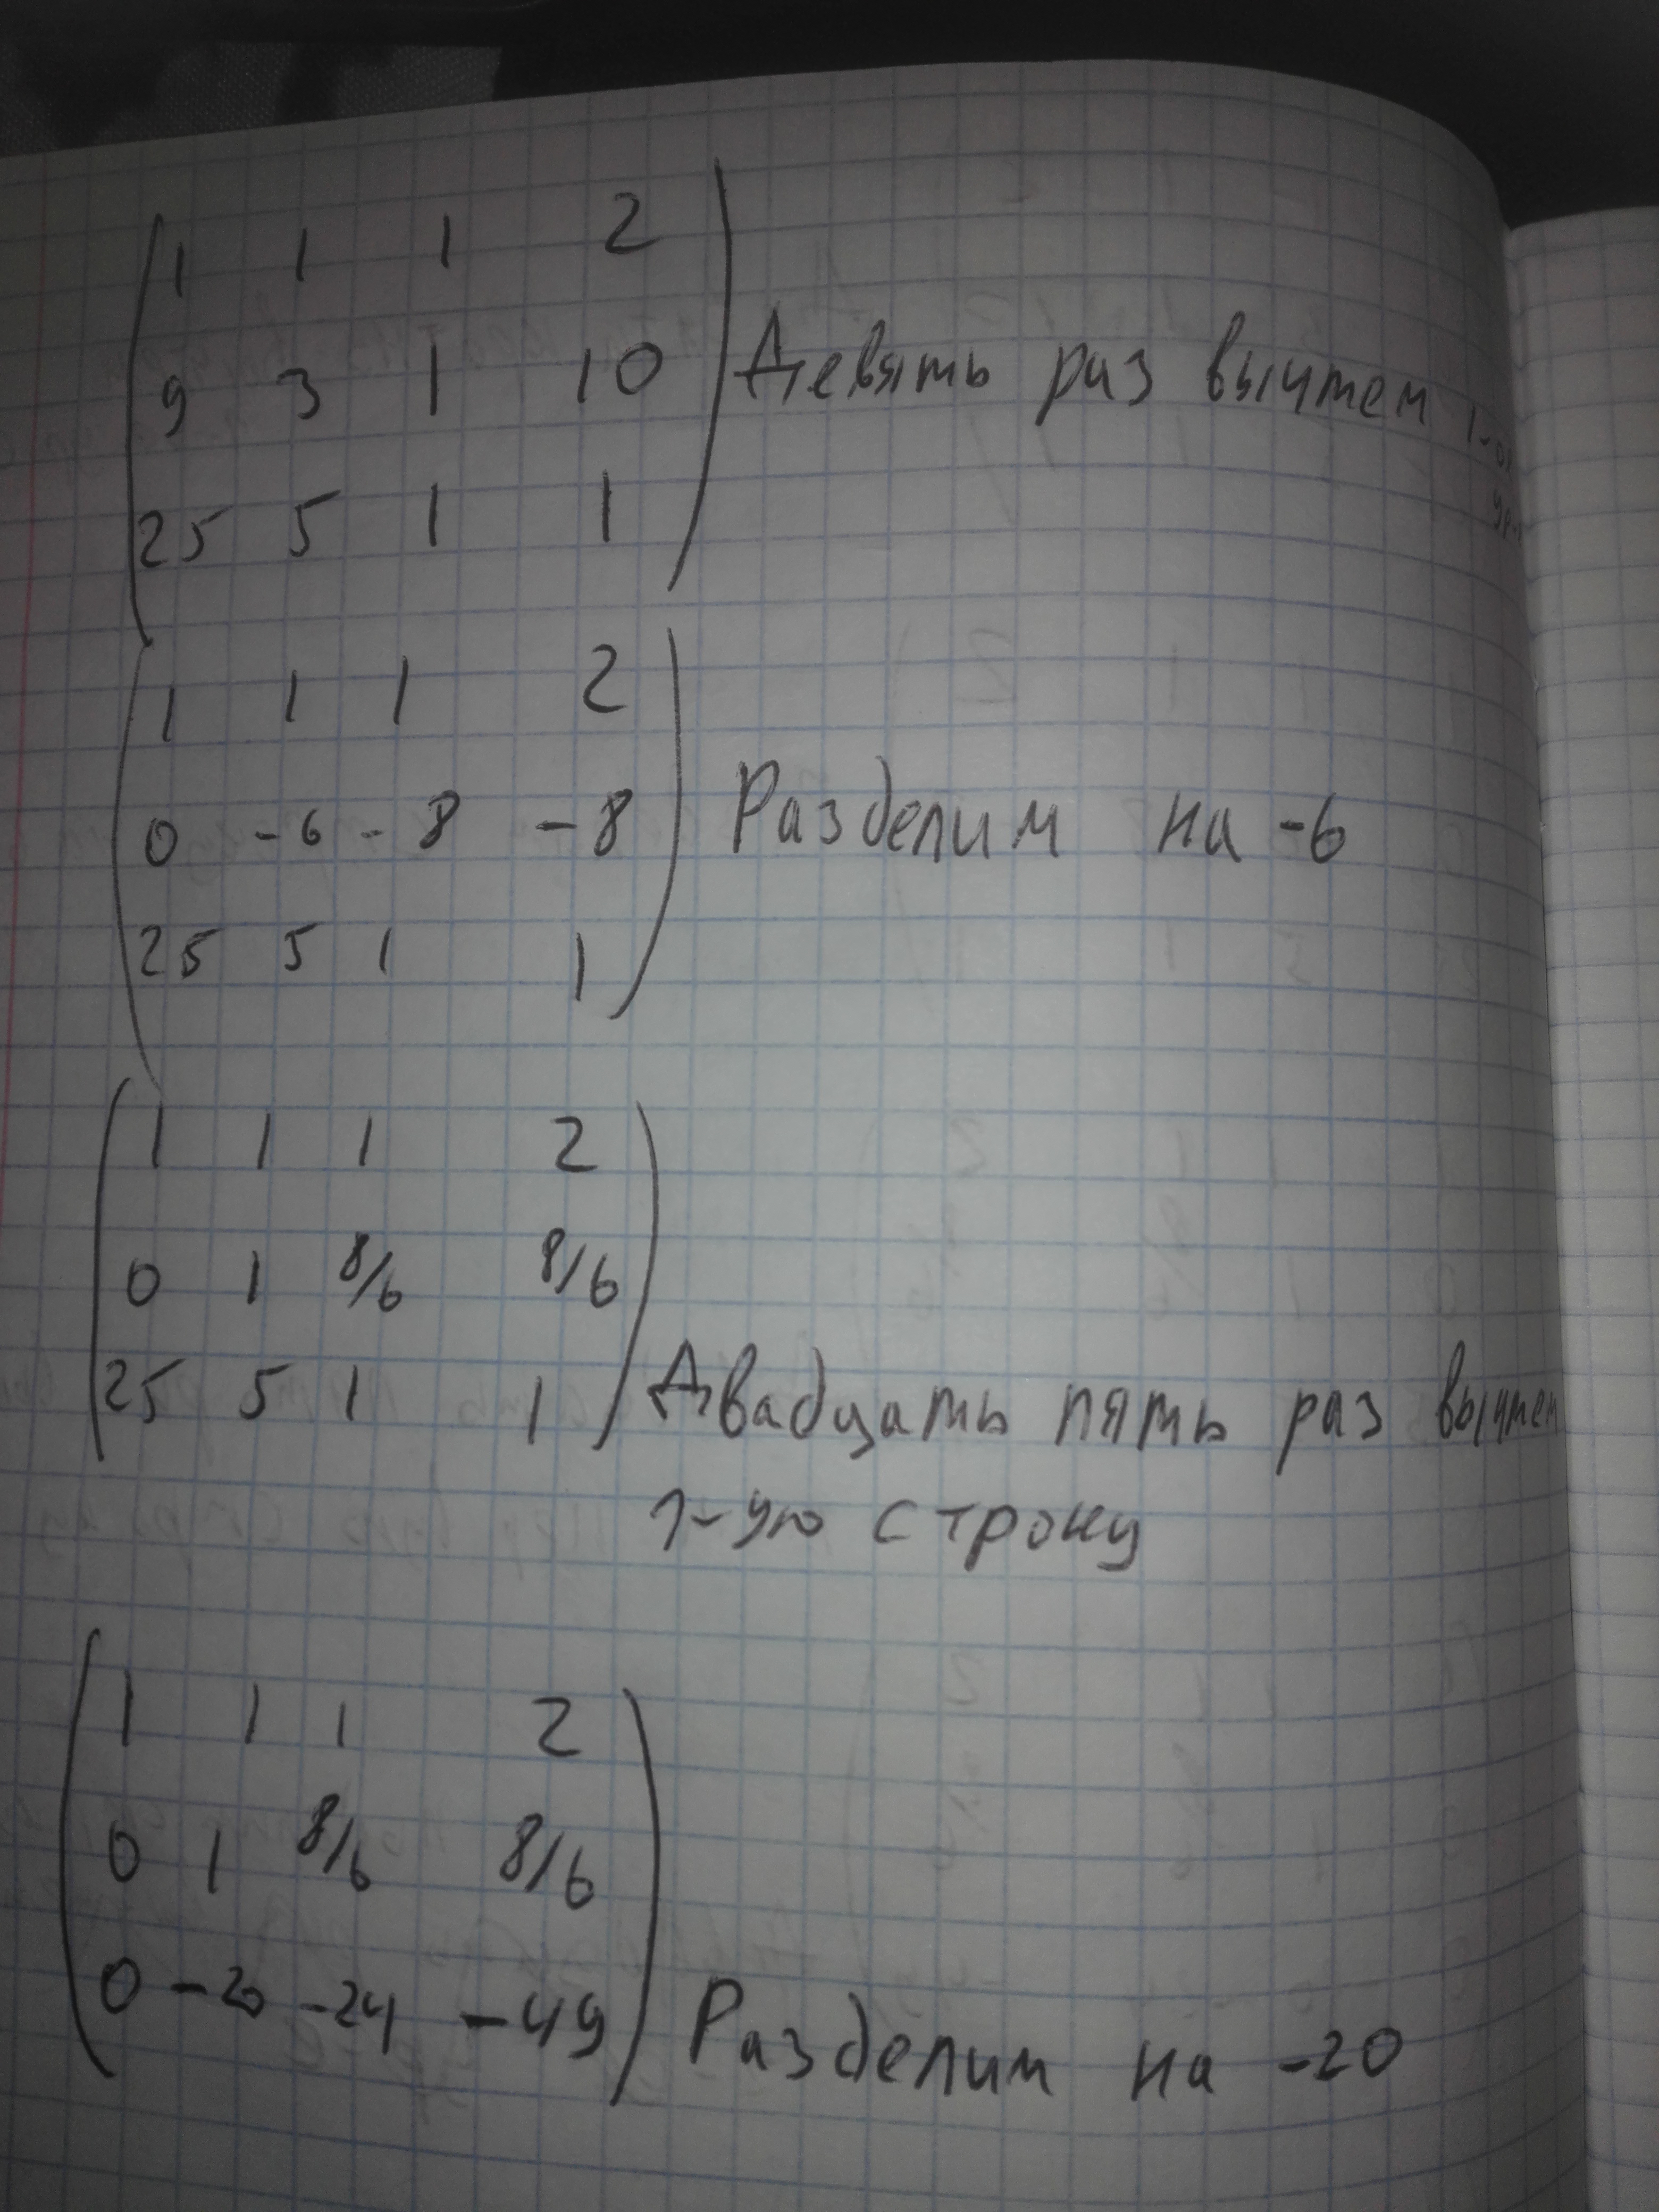 1 1 1 2
9 3 1 10 Девять раз вычтем 1-ое
ур-
25 5 1 1
1 1 1 2
0 -6 -8 -8 Разделим на -6
25 5 1 1
1 1 1 2
0 1 8/6 8/6
25 5 1 1 Двадцать пять раз вычтем
1-ую строку
1 1 1 2
0 1 8/6 8/6
0 -20 -24 -49 Разделим на -20